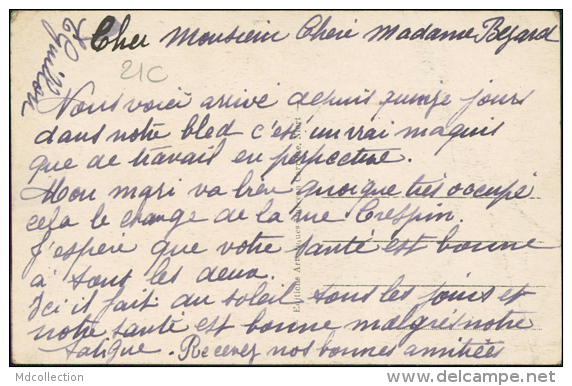 Cher Monsieur Chere Madame Bezard
21C
Nous voici arrivé depuis quinze jours
dans notre bled c'est un vrai maquis
que de travail en perspective.
Mon mari va bien quoique très occupé
cela le change de la rue Crespin.
J'espère que votre santé est bonne
à tout les deux.
Ici il fait du soleil tous les jours et
notre santé est bonne malgrés notre
fatigue. Recevez nos bonnes amitiées
Mdcollection
https://www.delcampe.net